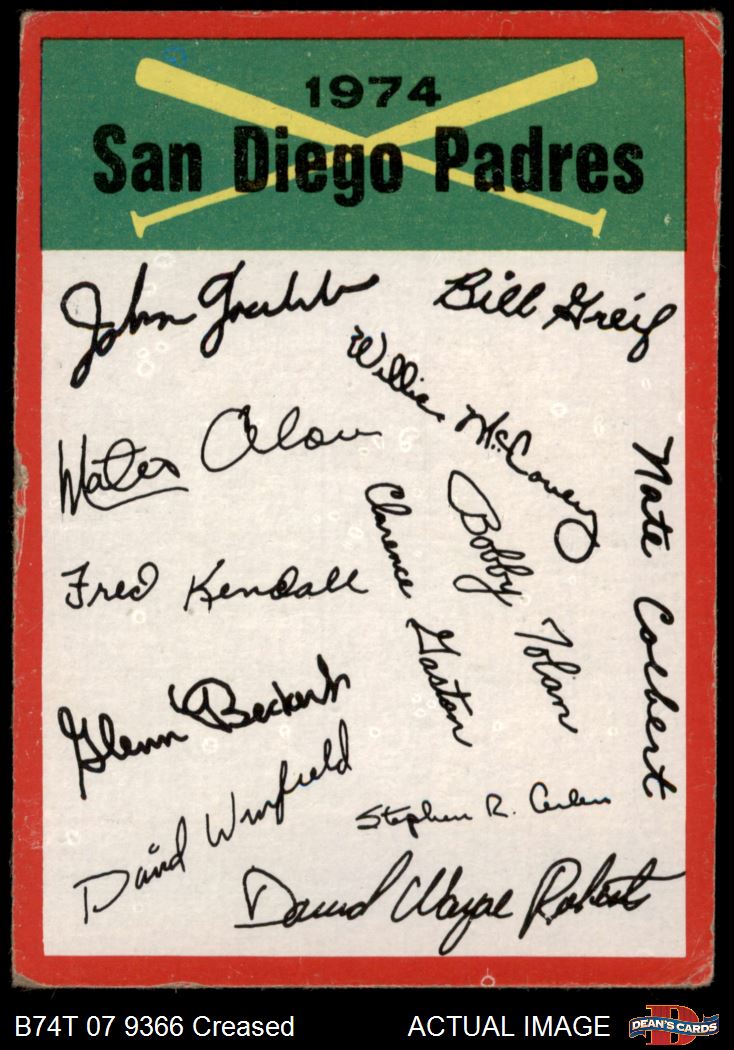 1974
San Diego Padres
John Grubb
Bill Greif
Willie McCovey
Mateo Alou
Nate Colbert
Clarence Gaston
Bobby Tolan
Fred Kendall
Glenn Beckert
David Winfield
Stephen R. Arlin
David Wayne Roberts
B74T 07 9366 Creased
ACTUAL IMAGE
D
DEAN'S CARDS